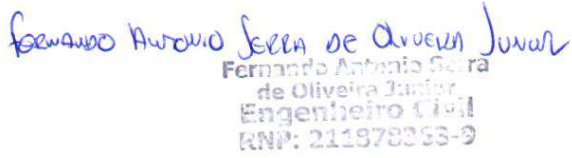 Fernando Antonio Serra de Oliveira Junior
Fernando Antonio Serra
de Oliveira Junior
Engenheiro Civil
RNP: 211878263-9